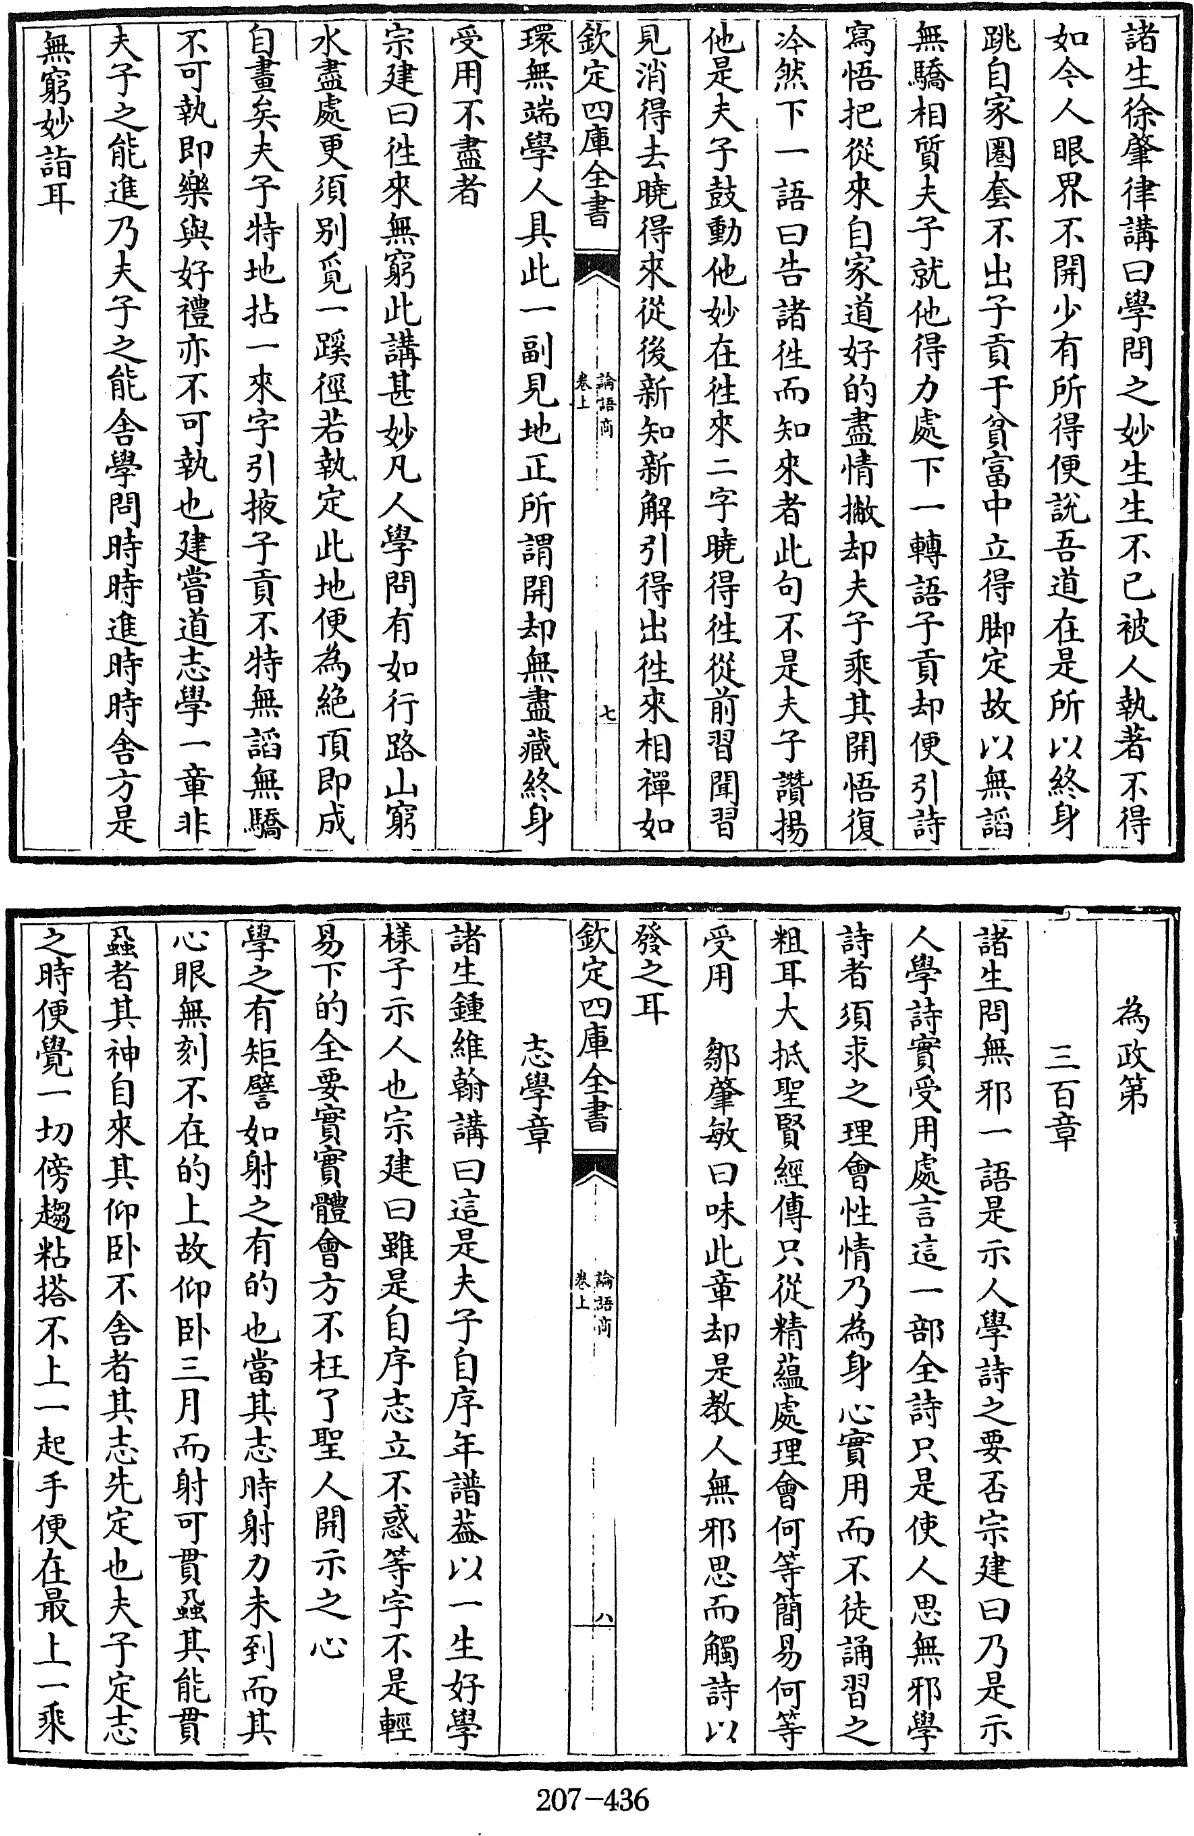 諸生徐肇律講曰學問之妙生生不已被人執著不得
如今人眼界不開少有所得便說吾道在是所以終身
跳自家圈套不出子貢于貧富中立得脚定故以無諂
無驕相質夫子就他得力處下一轉語子貢却便引詩
寫悟把從來自家道好的盡情撇却夫子乘其開悟復
冷然下一語曰告諸徃而知來者此句不是夫子讚揚
他是夫子鼓動他妙在徃來二字曉得徃從前習聞習
見消得去曉得來從後新知新解引得出徃來相禪如
欽定四庫全書
論語商
卷上
七
環無端學人具此一副見地正所謂開却無盡藏終身
受用不盡者
宗建曰徃來無窮此講甚妙凡人學問有如行路山窮
水盡處更須别覓一蹊徑若執定此地便為絶頂即成
自畫矣夫子特地拈一來字引掖子貢不特無諂無驕
不可執即樂與好禮亦不可執也建嘗道志學一章非
夫子之能進乃夫子之能舍學問時時進時時舍方是
無窮妙詣耳
為政第
三百章
諸生問無邪一語是示人學詩之要否宗建曰乃是示
人學詩實受用處言這一部全詩只是使人思無邪學
詩者須求之理會性情乃為身心實用而不徒誦習之
粗耳大抵聖賢經傳只從精蘊處理會何等簡易何等
受用　鄒肇敏曰味此章却是教人無邪思而觸詩以
發之耳
欽定四庫全書
論語商
卷上
八
志學章
諸生鍾維翰講曰這是夫子自序年譜葢以一生好學
様子示人也宗建曰雖是自序志立不惑等字不是輕
易下的全要實實體會方不枉了聖人開示之心
學之有矩譬如射之有的也當其志時射力未到而其
心眼無刻不在的上故仰卧三月而射可貫蝨其能貫
蝨者其神自來其仰卧不舍者其志先定也夫子定志
之時便覺一切傍趨粘搭不上一起手便在最上一乘
207-436